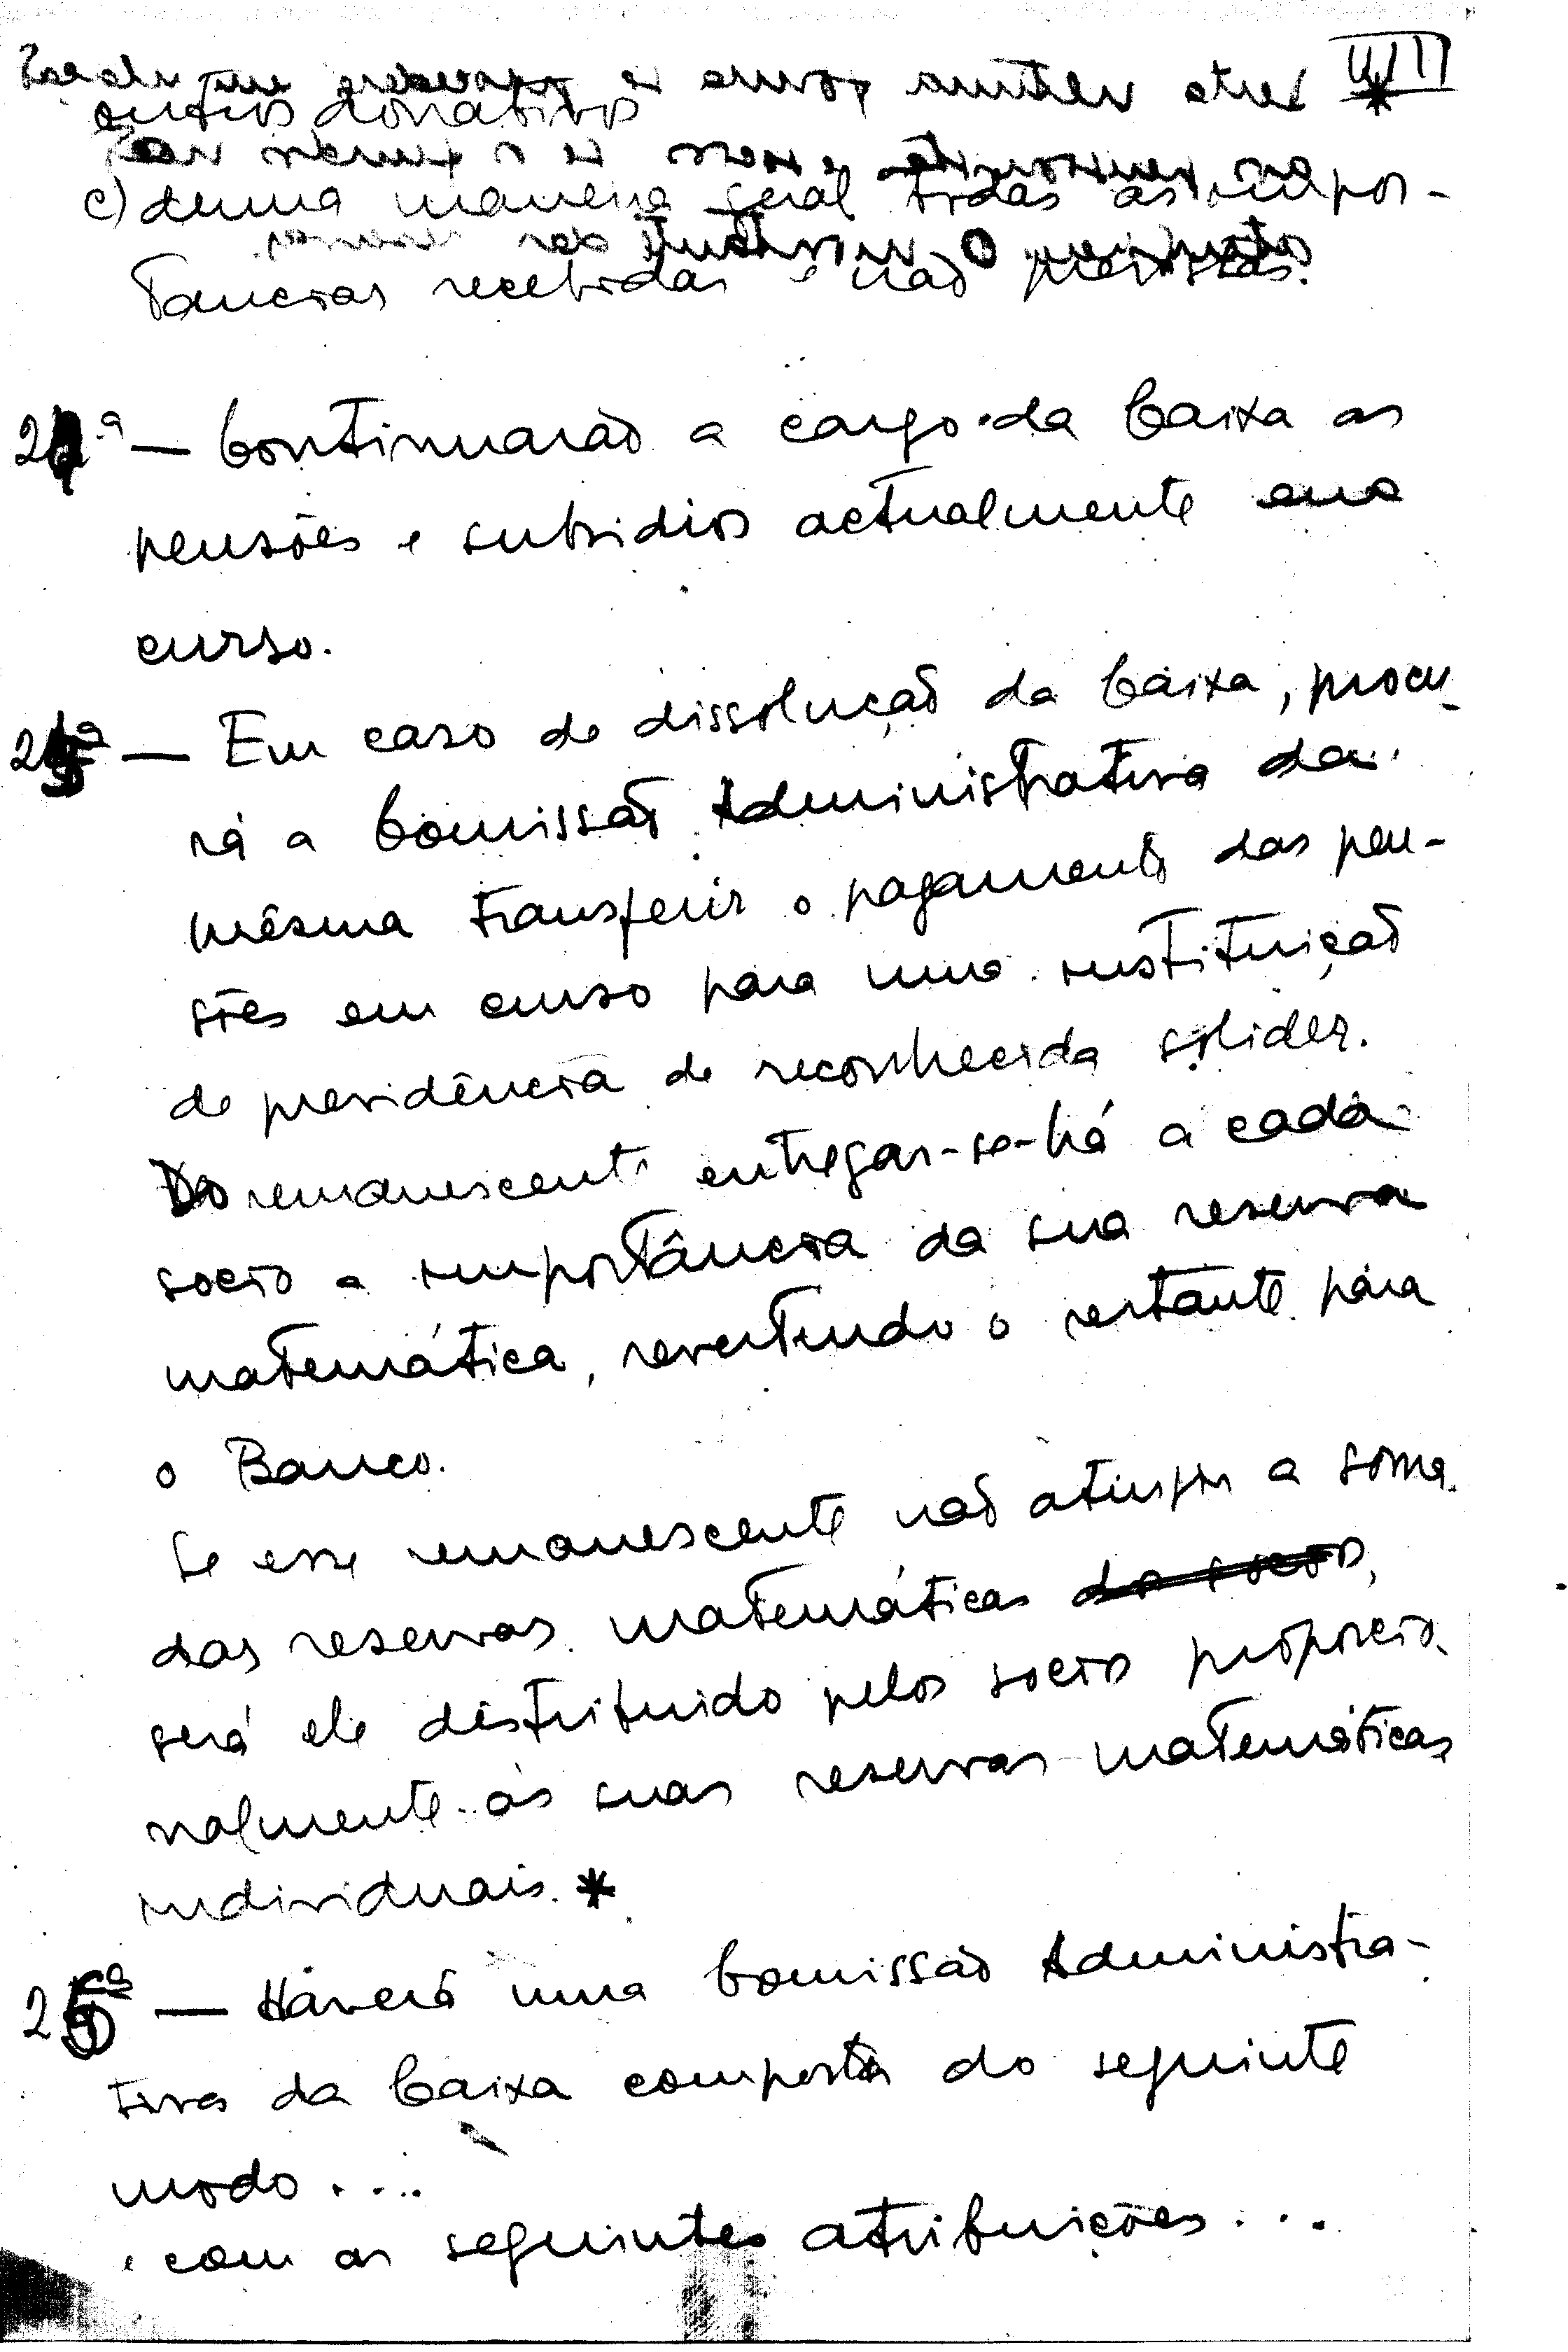 VIII
*
outros donativos
c) duma maneira geral todas as impor-
tancias recebidas e não previstas.
24.ª — Continuarão a cargo da Caixa as
pensões e subsidios actualmente em
curso.
25ª — Em caso de dissolução da Caixa, procu-
rá a Comissão Administrativa da
mêsma transferir o pagamento das pen-
sões em curso para uma instituição
de previdência de reconhecida solidez.
Do remanescente entregar-se-há a cada
socio a importância da sua reserva
matemática, revertendo o restante para
o Banco.
Se esse remanescente não atingir a soma
das reservas matemáticas do socio,
será ele distribuido pelos socios proporcio-
nalmente ás suas reservas matemáticas
individuais. *
26ª — Haverá uma Comissão Administra-
tiva da Caixa composta do seguinte
modo ....
e com as seguintes atribuições ...